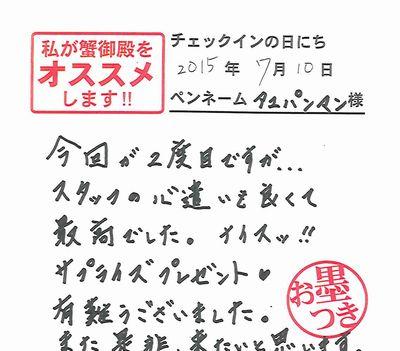 私が蟹御殿を
オススメ
します!!
チェックインの日にち
2015年 7月10日
ペンネーム タユパンマン様
今回が2度目ですが...
スタッフの心遣いも良くて
最高でした。ナイスッ!!
サプライズプレゼント♥
有難うございました。
また是非、来たいと思います。
お墨つき